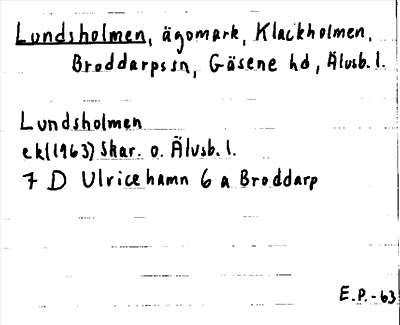 Lundsholmen, ägomark, Klackholmen,
Broddarpssn, Gäsene hd, Älvsb. l.
Lundsholmen
ek (1963) Skar. o. Älvsb. l.
7 D Ulricehamn 6 a Broddarp
E.P.-63